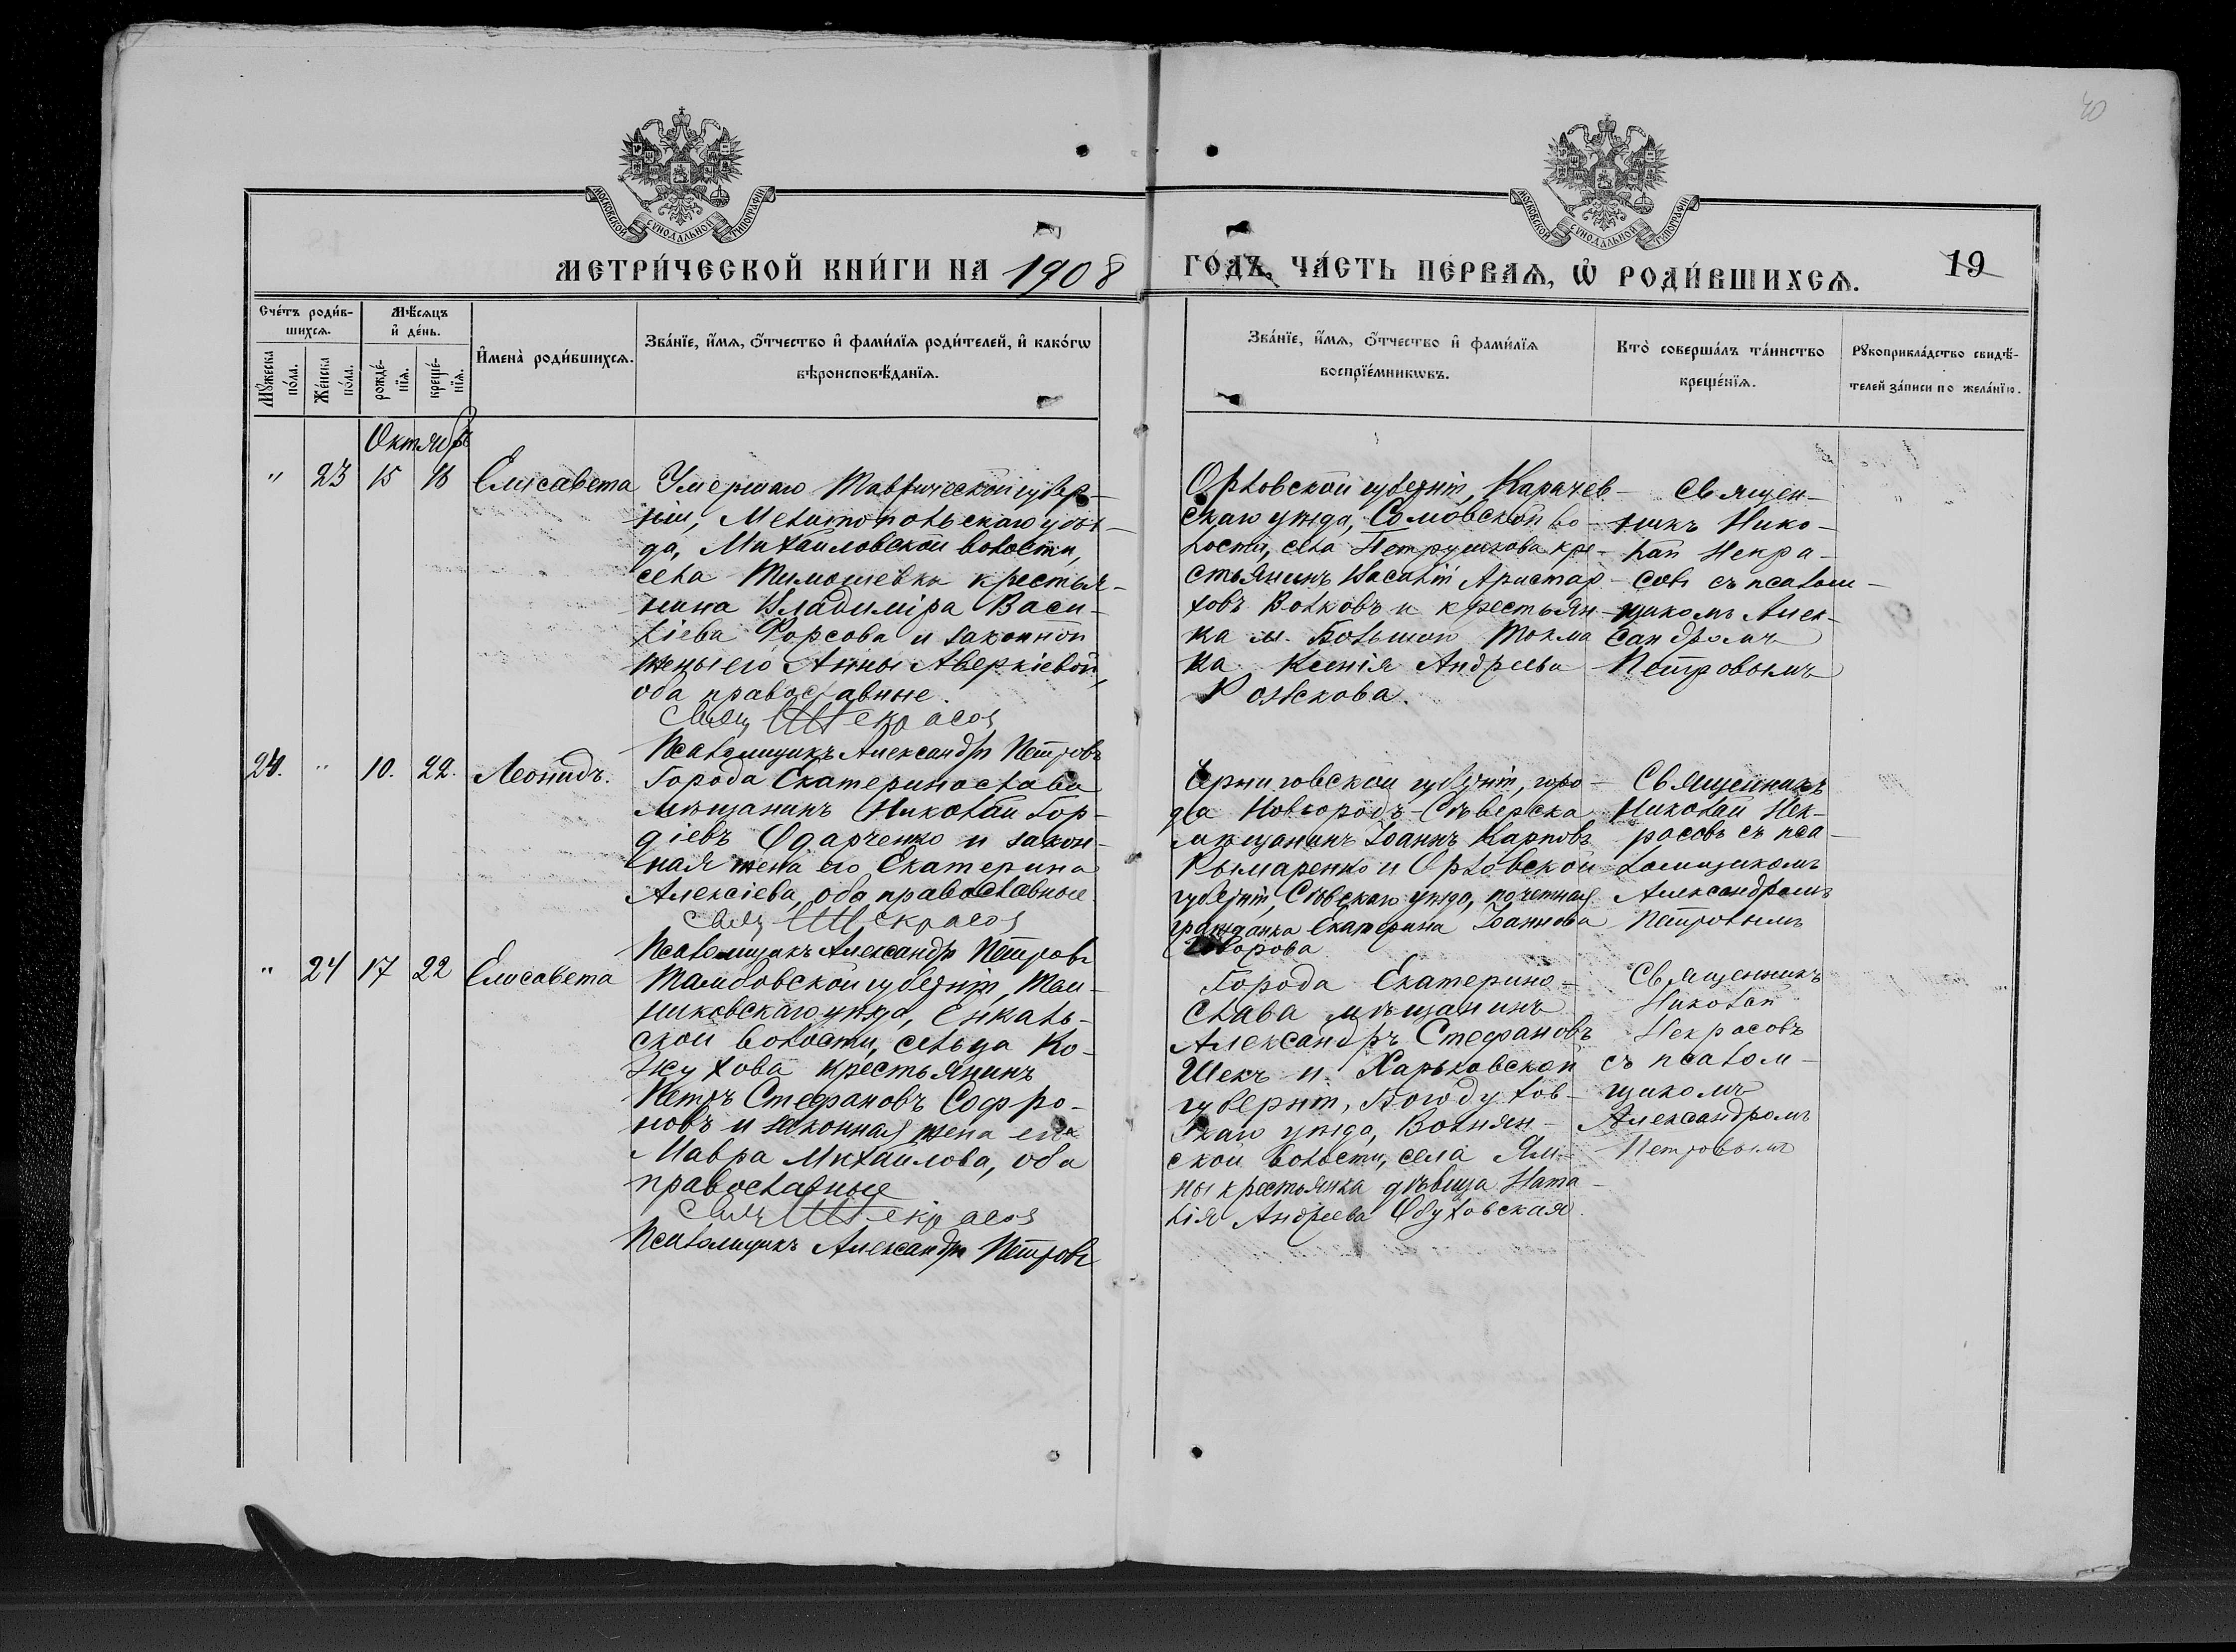 40
МОСКОВСКОЙ СѴНОДАЛЬНОЙ ТИПОГРАФІИ
МОСКОВСКОЙ СѴНОДАЛЬНОЙ ТИПОГРАФІИ
МЕТРИ́ЧЕСКОЙ КНИ́ГИ НА 1908
ГО́ДЪ, ЧА́СТЬ ПЕ́РВАѦ, Ѡ҆ РОДИ́ВШИХСѦ.
19
Сче́тъ роди́в-
шихсѧ.
Мꙋ́жеска
по́ла.
Же́нска
по́ла.
Мѣ́сѧцъ
и҆ де́нь.
рожде́-
нїѧ.
креще́-
нїѧ.
И҆мена̀ роди́вшихсѧ.
Зва́нїе, и҆́мѧ, ѻ҆́тчество и҆ фами́лїѧ роди́телей, и҆ како́гѡ
вѣроисповѣ́данїѧ.
Зва́нїе, и҆́мѧ, ѻ҆́тчество и҆ фами́лїѧ
воспрїе́мникѡвъ.
Кто̀ соверша́лъ та́инство
креще́нїѧ.
Рꙋкоприкла́дство свидѣ́-
телей за́писи по жела́нїю.
Октябрь
" 23 15 18 Елисавета
Умершаго Таврической губер-
ніи, Мелитопольскаго уѣз-
да, Михайловской волости,
села Тимошевки крестья-
нина Владиміра Васи-
ліева Форсова и законной
жены его Анны Аверкіевой,
оба православные.
Свящ Некрасов
Псаломщикъ Александръ Петровъ
Орловской губерніи, Карачев-
скаго уѣзда, Сомовской во-
лости, села Петрушкова кре-
стьянинъ Василій Аристар-
ховъ Волковъ и крестьян-
ка м. Большой Токма
ка Ксенія Андреева
Рольскова.
Священ-
никъ Нико-
лай Некра-
совъ съ псалом-
щикомъ Алек-
сандромъ
Петровымъ
24. " 10. 22. Леонидъ.
Города Екатеринослава
мѣщанинъ Николай Гор-
діевъ Одарченко и закон-
ная жена его Екатерина
Алексіева, оба православные.
Свящ Некрасов
Псаломщикъ Александръ Петровъ
Черниговской губерніи, горо-
да Новгородъ-Сѣверска
мѣщанинъ Іоаннъ Карповъ
Рымаренко и Орловской
губерніи, Сѣвскаго уѣзда, почетная
гражданка Екатерина Іоаннова
Говорова
Священникъ
Николай Нек-
расовъ съ пса-
ломщикомъ
Александромъ
Петровымъ
" 24 17 22 Елисавета
Тамбовской губерніи, Тем-
никовскаго уѣзда, Енкаль-
ской волости, сельца Ко-
жухова крестьянинъ
Петръ Стефановъ Софро-
новъ и законная жена его
Мавра Михайлова, оба
православные
Свящ Некрасов
Псаломщикъ Александръ Петровъ
Города Екатерино-
слава мѣщанинъ
Александръ Стефановъ
Шекъ и Харьковской
губерніи, Богодухов-
скаго уѣзда, Волнян-
ской волости, села Ям-
ны крестьянка дѣвица Ната-
лія Андреева Обуховская.
Священникъ
Николай
Некрасовъ
съ псалом-
щикомъ
Александромъ
Петровымъ